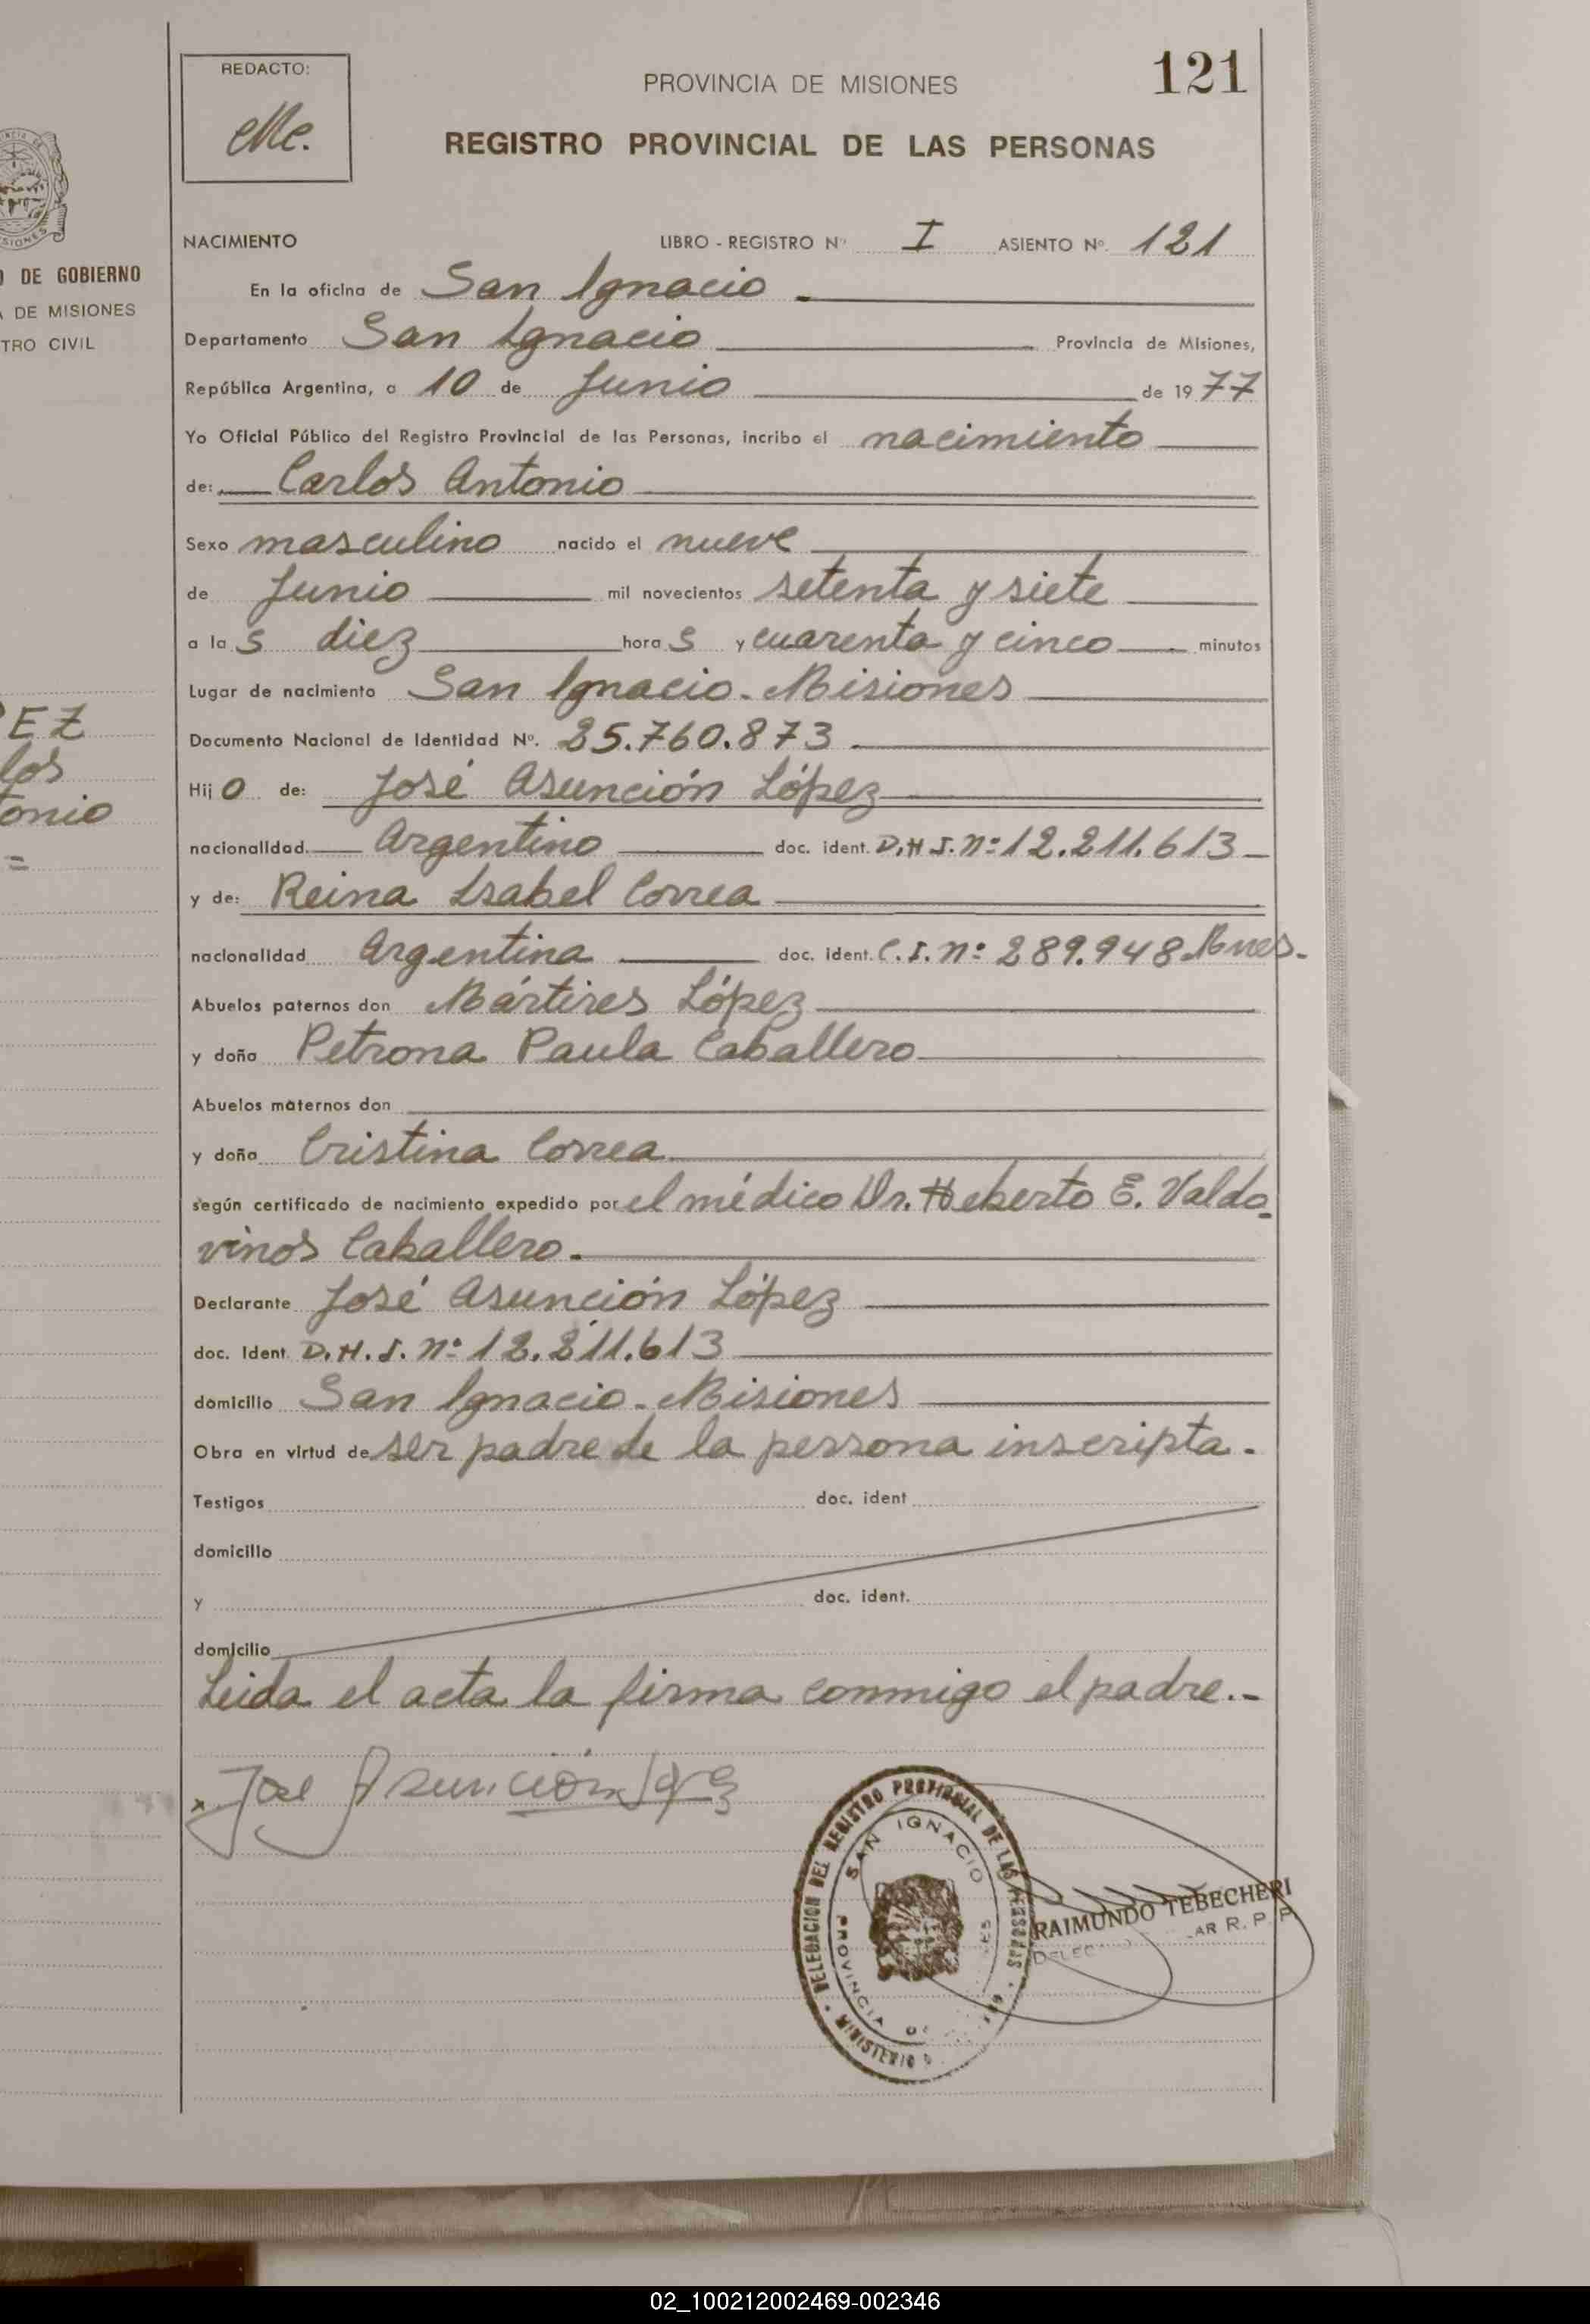 DE GOBIERNO
DE MISIONES
TRO CIVIL
EZ
los
onio
REDACTO:
121
PROVINCIA DE MISIONES
REGISTRO PROVINCIAL DE LAS PERSONAS
NACIMIENTO LIBRO - REGISTRO Nº I ASIENTO Nº 121
En la oficina de San Ignacio.
Departamento San Ignacio Provincia de Misiones,
República Argentina, a 10 de Junio de 1977
Yo Oficial Público del Registro Provincial de las Personas, incribo el nacimiento
de: Carlos Antonio
Sexo masculino nacido el nueve
de Junio mil novecientos setenta y siete
a las diez horas y cuarenta y cinco minutos
Lugar de nacimiento San Ignacio - Misiones
Documento Nacional de Identidad Nº. 25.760.873
Hijo de: José Asunción López
nacionalidad Argentino doc. ident. D.N.I. nº 12.211.613
y de: Reina Isabel Correa
nacionalidad Argentina doc. ident. C.I. nº 289.948 Mnes.
Abuelos paternos don Mártires López
y doña Petrona Paula Caballero
Abuelos maternos don
y doña Cristina Correa
según certificado de nacimiento expedido por el médico Dr. Heberto E. Valdo-
vinos Caballero.
Declarante José Asunción López
doc. Ident. D.N.I. nº 12.211.613
domicilio San Ignacio - Misiones
Obra en virtud de ser padre de la persona inscripta.
Testigos doc. ident
domicilio
y doc. ident.
domicilio
Leida el acta la firma conmigo el padre.-
x José Asunción López
DELEGACION DEL REGISTRO PROVINCIAL DE LAS PERSONAS
MINISTERIO
SAN IGNACIO
PROVINCIA DE
RAIMUNDO TEBECHERI
AR R. P. P.
02_100212002469-002346